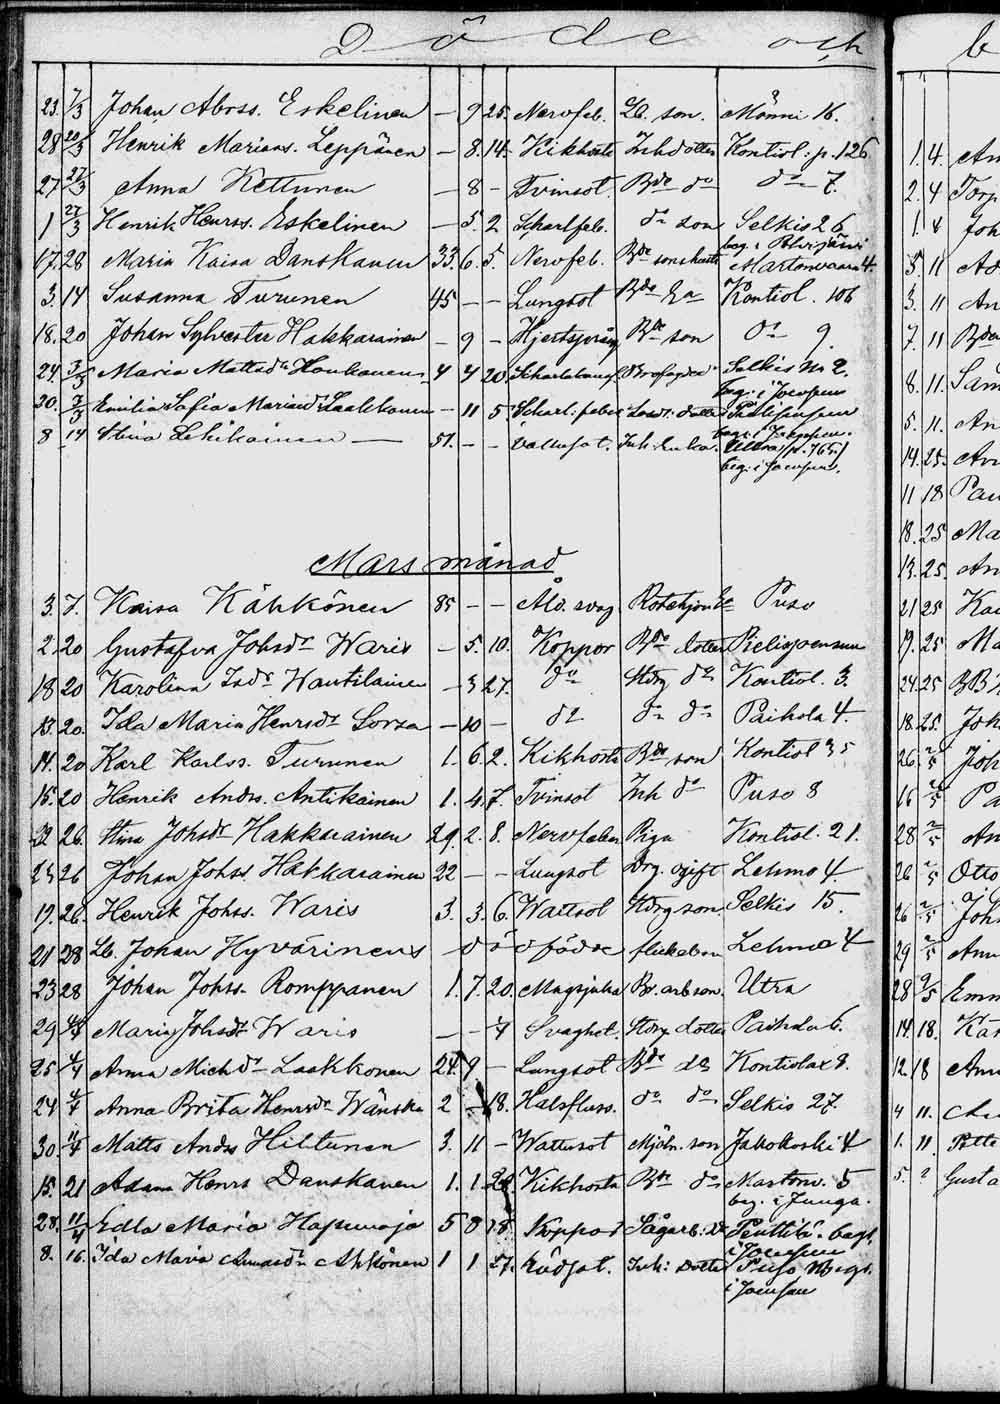 Döde och
23. 7/3 Johan Abrss. Eskelinen — 9 25. Nervfeb. Lb. son. Mönni 16.
28 20/3 Henrik Marians. Leppänen — 8. 14. Kikhosta Inh dotter Kontiol. p. 126
27 27/3 Anna Kettunen — 8 — Tvinsot. Bde do do 7.
1 27/3 Henrik Henrss. Eskelinen — 5 2 Scharlfeb. do son Selkis 26
beg. i Polvijärvi
17. 28 Maria Kaisa Danskanen 33. 6. 5. Nervfeb. Bde sons hustr Martonvaara 4.
3. 14 Susanna Turunen 45 — — Lungsot Bde Ea Kontiol. 106
18. 20 Johan Sylvester Hakkarainen — 9 — Hjertsprång Bde son do 9.
24. 3/3 Maria Mattsdr Honkanen 4 4 20. Selkis Nr 2.
beg. i Joensuu
20. 7/3 Emilia Sofia Mariand. Laakkonen — 11 5 Scharl. feber dotter
beg. i Joensuu.
8 14 Stina Lehikoinen — 51. — — Vattusot. Inh. Enka. Utra p. 765.
beg. i Joensuu.
Mars månad
3. 7. Kaisa Kähkönen 85 — — Åld. svag Rotehjon Puso
2. 20 Gustafva Johsdr Waris — 5. 10. Koppor Bde dotter
18 20 Karolina Isdr Wantilainen — 3 27. do Stdrg do Kontiol. 3.
13. 20. Ida Maria Henrsdr Sorsa — 10 — do do do Paihola 4.
14. 20 Karl Karlss. Turunen 1. 6. 2. Kikhosta Bde son Kontiol 35
15. 20 Henrik Andrs. Antikainen 1. 4. 7. Tvinsot Inh do Puso 8
22 26. Stina Johsdr Hakkarainen 29. 2. 8. Nervfeber Piga Kontiol. 21.
25 26 Johan Johss. Hakkarainen 22 — — Lungsot Drg. ogift Lehmo 4.
19. 26. Henrik Johss. Waris 3. 3. 6. Wattsot Stdrg son Selkis 15.
21 28 Lb. Johan Hyvärinens dödfödde flickebarn Lehmo 4
23 28 Johan Johss. Romppanen 1. 7. 20. Magsjuka Br. arb son. Utra
29 4/4 Maria Johsdr Waris — — 1/4 Svaghet. Stdrg dotter Paihola 6.
25 4/4 Anna Michdr Laakkonen 24. 9 — Lungsot Bde do Kontiolax 8.
24 4/4 Anna Brita Henrsdr Wänska 2 — 18. Halsfluss. do do Selkis 27.
30. 11/4 Matts Andrs Hiltunen 3. 11 — Wattusot Mjöln. son Jakokoski 4
15. 21 Adam Henrs Danskanen 1. 1. Kikhosta Bde do Martonv. 5
beg. i Juuga.
28. 11/4 Edla Maria Hapuoja 5 8 18. Koppor Sågarb: Dr Penttilä. begr.
i Joensuu
8. 16. Ida Maria Annasdr Ahkönen 1 1 27. Rödsot. Inh: dotter Puso begr.
i Joensuu
b
1. 4. An
2. 4 Torp
1. 4 Joh
5. 11 Ad
3. 11 An
7. 11 Bden
8. 11. Sam
5. 11. An
14. 25. Ann
11 18 Pau
18. 25 Ma
13. 25. An
21 25 Kai
19. 25 Ma
24 25
18. 25. Joh
26. 2/5 Joh
16 2/5 Pa
28 2/5 An
26 2/5 Otto
26 2/5 Joh
29 2/5 Ann
28 9/5 Emm
14. 18. Kar
12. 18 Ann
4 11.
1. 11.
5. ? Gusta